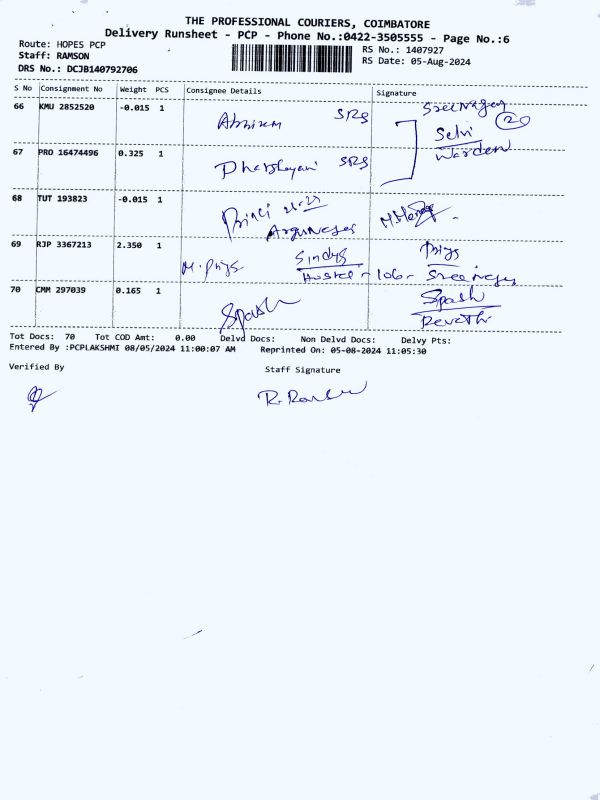 THE PROFESSIONAL COURIERS, COIMBATORE
Delivery Runsheet - PCP - Phone No.:0422-3505555 - Page No.:6
Route: HOPES PCP
RS No.: 1407927
Staff: RAMSON
RS Date: 05-Aug-2024
DRS No.: DCJB140792706
S No Consignment No Weight PCS Consignee Details Signature
66 KMU 2852520 -0.015 1 Abniram SRS Sreenagar 20
Selvi
67 PRO 16474496 0.325 1 SRS Warden
68 TUT 193823 -0.015 1 Princi 21-27
69 RJP 3367213 2.350 1 M. Priya Sindys Priya
Hostel - 106 - Sreenagar
70 CMM 297039 0.165 1 Spash Spash
Revathi
Tot Docs: 70 Tot COD Amt: 0.00 Delvd Docs: Non Delvd Docs: Delvy Pts:
Entered By :PCPLAKSHMI 08/05/2024 11:00:07 AM Reprinted On: 05-08-2024 11:05:30
Verified By Staff Signature